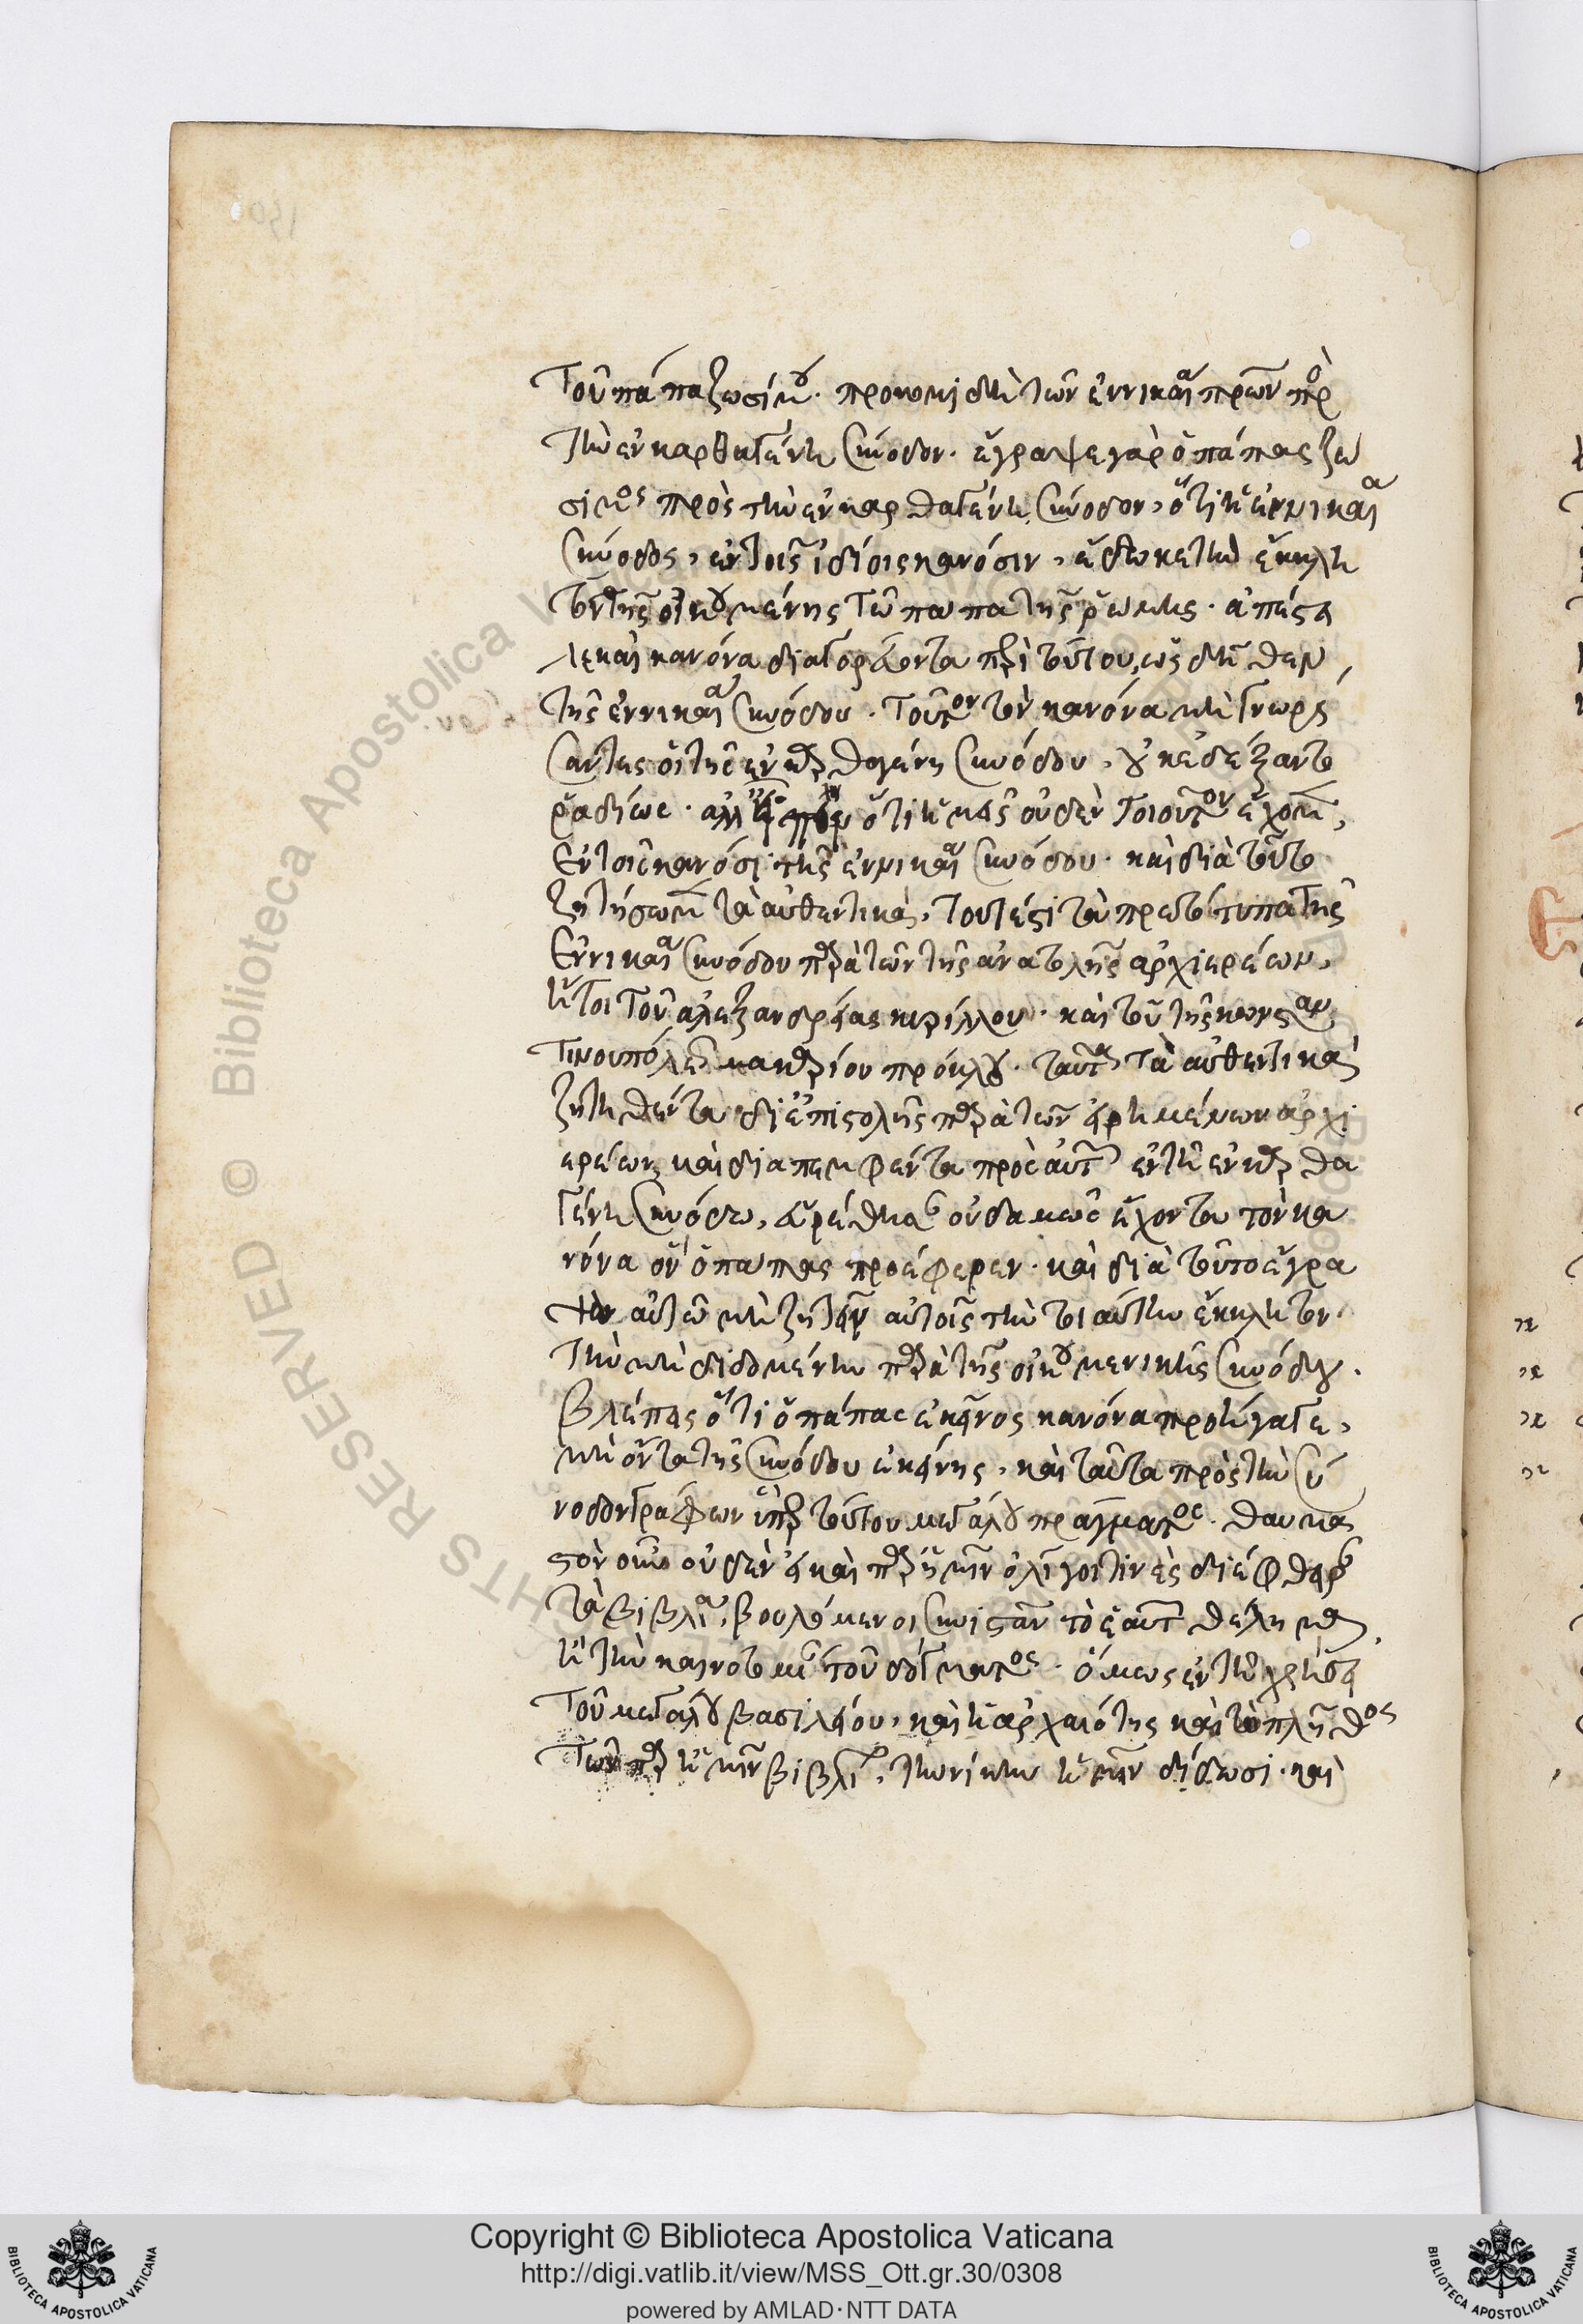 τοῦ πάπα ζωσίμου. προκομιδὴ τῶν ἐν νικαία πρώην πρὸς
τὴν ἐν καρθαγένη σύνοδον. ἔγραψε γὰρ ὁ πάπας ζώ
σιμος πρὸς τὴν ἐν καρθαγένη σύνοδον, ὅτι ἡ ἐν νικαία
σύνοδος, ἐν τοῖς ἰδίοις κανόσιν, ἔδωκε τὴν ἔκκλη
τον τῆς οἰκουμένης τῷ πάπα τῆς ῥώμης. ἀπέστει
λε καὶ κανόνα διαγορεύοντα περὶ τούτου, ὡς δῆθεν
τῆς ἐν νικαία συνόδου. τοῦτον τὸν κανόνα μὴ γνωρί
σαντες οἱ τῆς ἐν καρθαγένη συνόδου, οὐκ ἐδέξαντο
ῥαδίως. ἀλλ' ὅτι ἡμεῖς οὐδὲν τοιοῦτον ἔχομεν,
ἐν τοῖς κανόσι τῆς ἐν νικαία συνόδου. καὶ διὰ τοῦτο
ζητήσωμεν τὰ αὐθεντικὰ, τουτέστι τὰ πρωτότυπα τῆς
ἐν νικαία συνόδου παρὰ τῶν τῆς ἀνατολῆς ἀρχιερέων,
ἤτοι τοῦ ἀλεξανδρείας κυρίλλου. καὶ τοῦ τῆς κωνσταν
τινουπόλεως μακαρίου πρόκλου. ταῦτα τὰ αὐθεντικὰ
ζητηθέντα δι' ἐπιστολῆς παρὰ τῶν εἰρημένων ἀρχι
ερέων, καὶ διαπεμφθέντα πρὸς αὐτοὺς ἐν τῇ ἐν καρθα
γένη συνόδω, εὑρέθησαν οὐδαμῶς ἔχοντα τὸν κα
νόνα ὃν ὁ πάπας προέφερεν. καὶ διὰ τοῦτο ἔγρα
ψαν αὐτῷ μὴ ζητεῖν αὐτοῖς τὴν τοιαύτην ἔκκλητον.
τὴν μὴ διδομένην παρὰ τῆς οἰκουμενικῆς συνόδου.
βλέπεις ὅτι ὁ πάπας ἐκεῖνος κανόνα προήγαγε,
μὴ ὄντα τῆς συνόδου ἐκείνης, καὶ ταῦτα πρὸς τὴν σύ
νοδον γράφων ὑπὲρ τούτου μεγάλου πράγματος. θαυμα
στὸν οὖν οὐδὲν εἰ καὶ παρ' ἡμῖν ὀλίγοι τινὲς διέφθειραν
τὰ βιβλία, βουλόμενοι συνιστᾶν τὸ ἑαυτῶν θέλημα,
ἢ τὴν καινοτομίαν τοῦ δόγματος. ὅμως ἐν τῇ χρήσει
τοῦ μεγάλου βασιλείου, καὶ ἡ ἀρχαιότης καὶ τὸ πλῆθος
τῶν παρ' ἡμῖν βιβλίων, τὴν νίκην ἡμῖν δίδωσι. καὶ
Copyright © Biblioteca Apostolica Vaticana
http://digi.vatlib.it/view/MSS_Ott.gr.30/0308
powered by AMLAD·NTT DATA